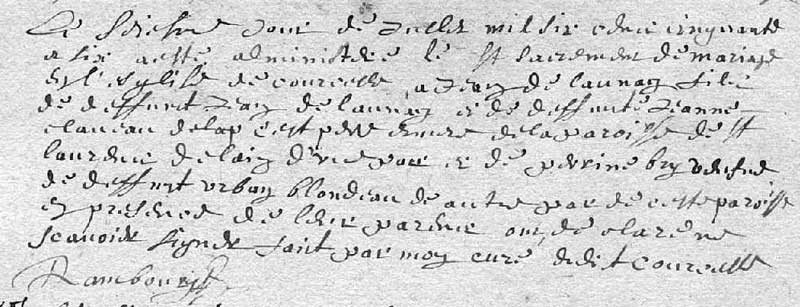 Le seiesme jour de Jullet mil six cens cinquante
a six a esté administré le st sacrement de mariage
en l'esglise de courcelle, a Jean de launay filz
de deffunt Jean de launay et de deffunte Jeanne
claueau de la paroisse de st
laurens de d'une part et de perrine bry veufue
de deffunt urban blondeau de autre part de ceste paroisse
en presence de leur parens ont declaré ne
scauoir signer faict par moy curé dudit Courcelle
Rambourg